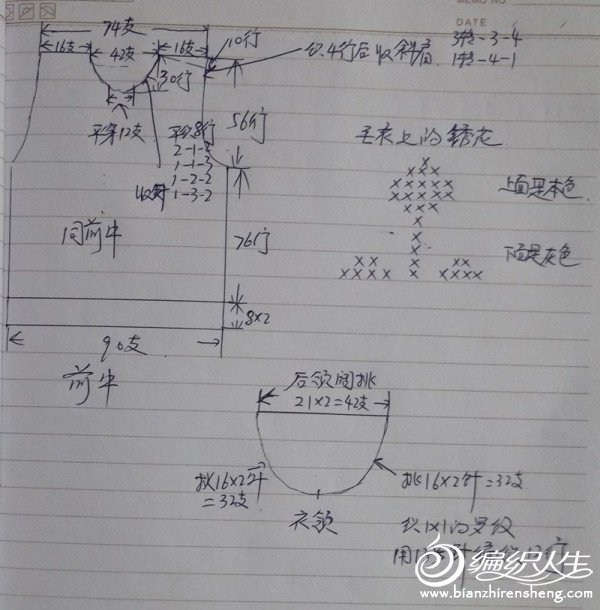 MEMO NO
DATE
74支
16支
42支
16支
10行
织4行后收斜肩
3转-3-4
1转-4-1
30行
平穿12支
平织8行
2-1-2
1-1-3
1-2-2
1-3-2
收针
56行
毛衣上的绣花
上面是本色
下面是灰色
同前片
76行
8×2
90支
前片
后领阔挑
21×2=42支
挑16×2针
=32支
挑16×2针=32支
衣领
织1×1的罗纹
编织人生
www.bianzhirensheng.com